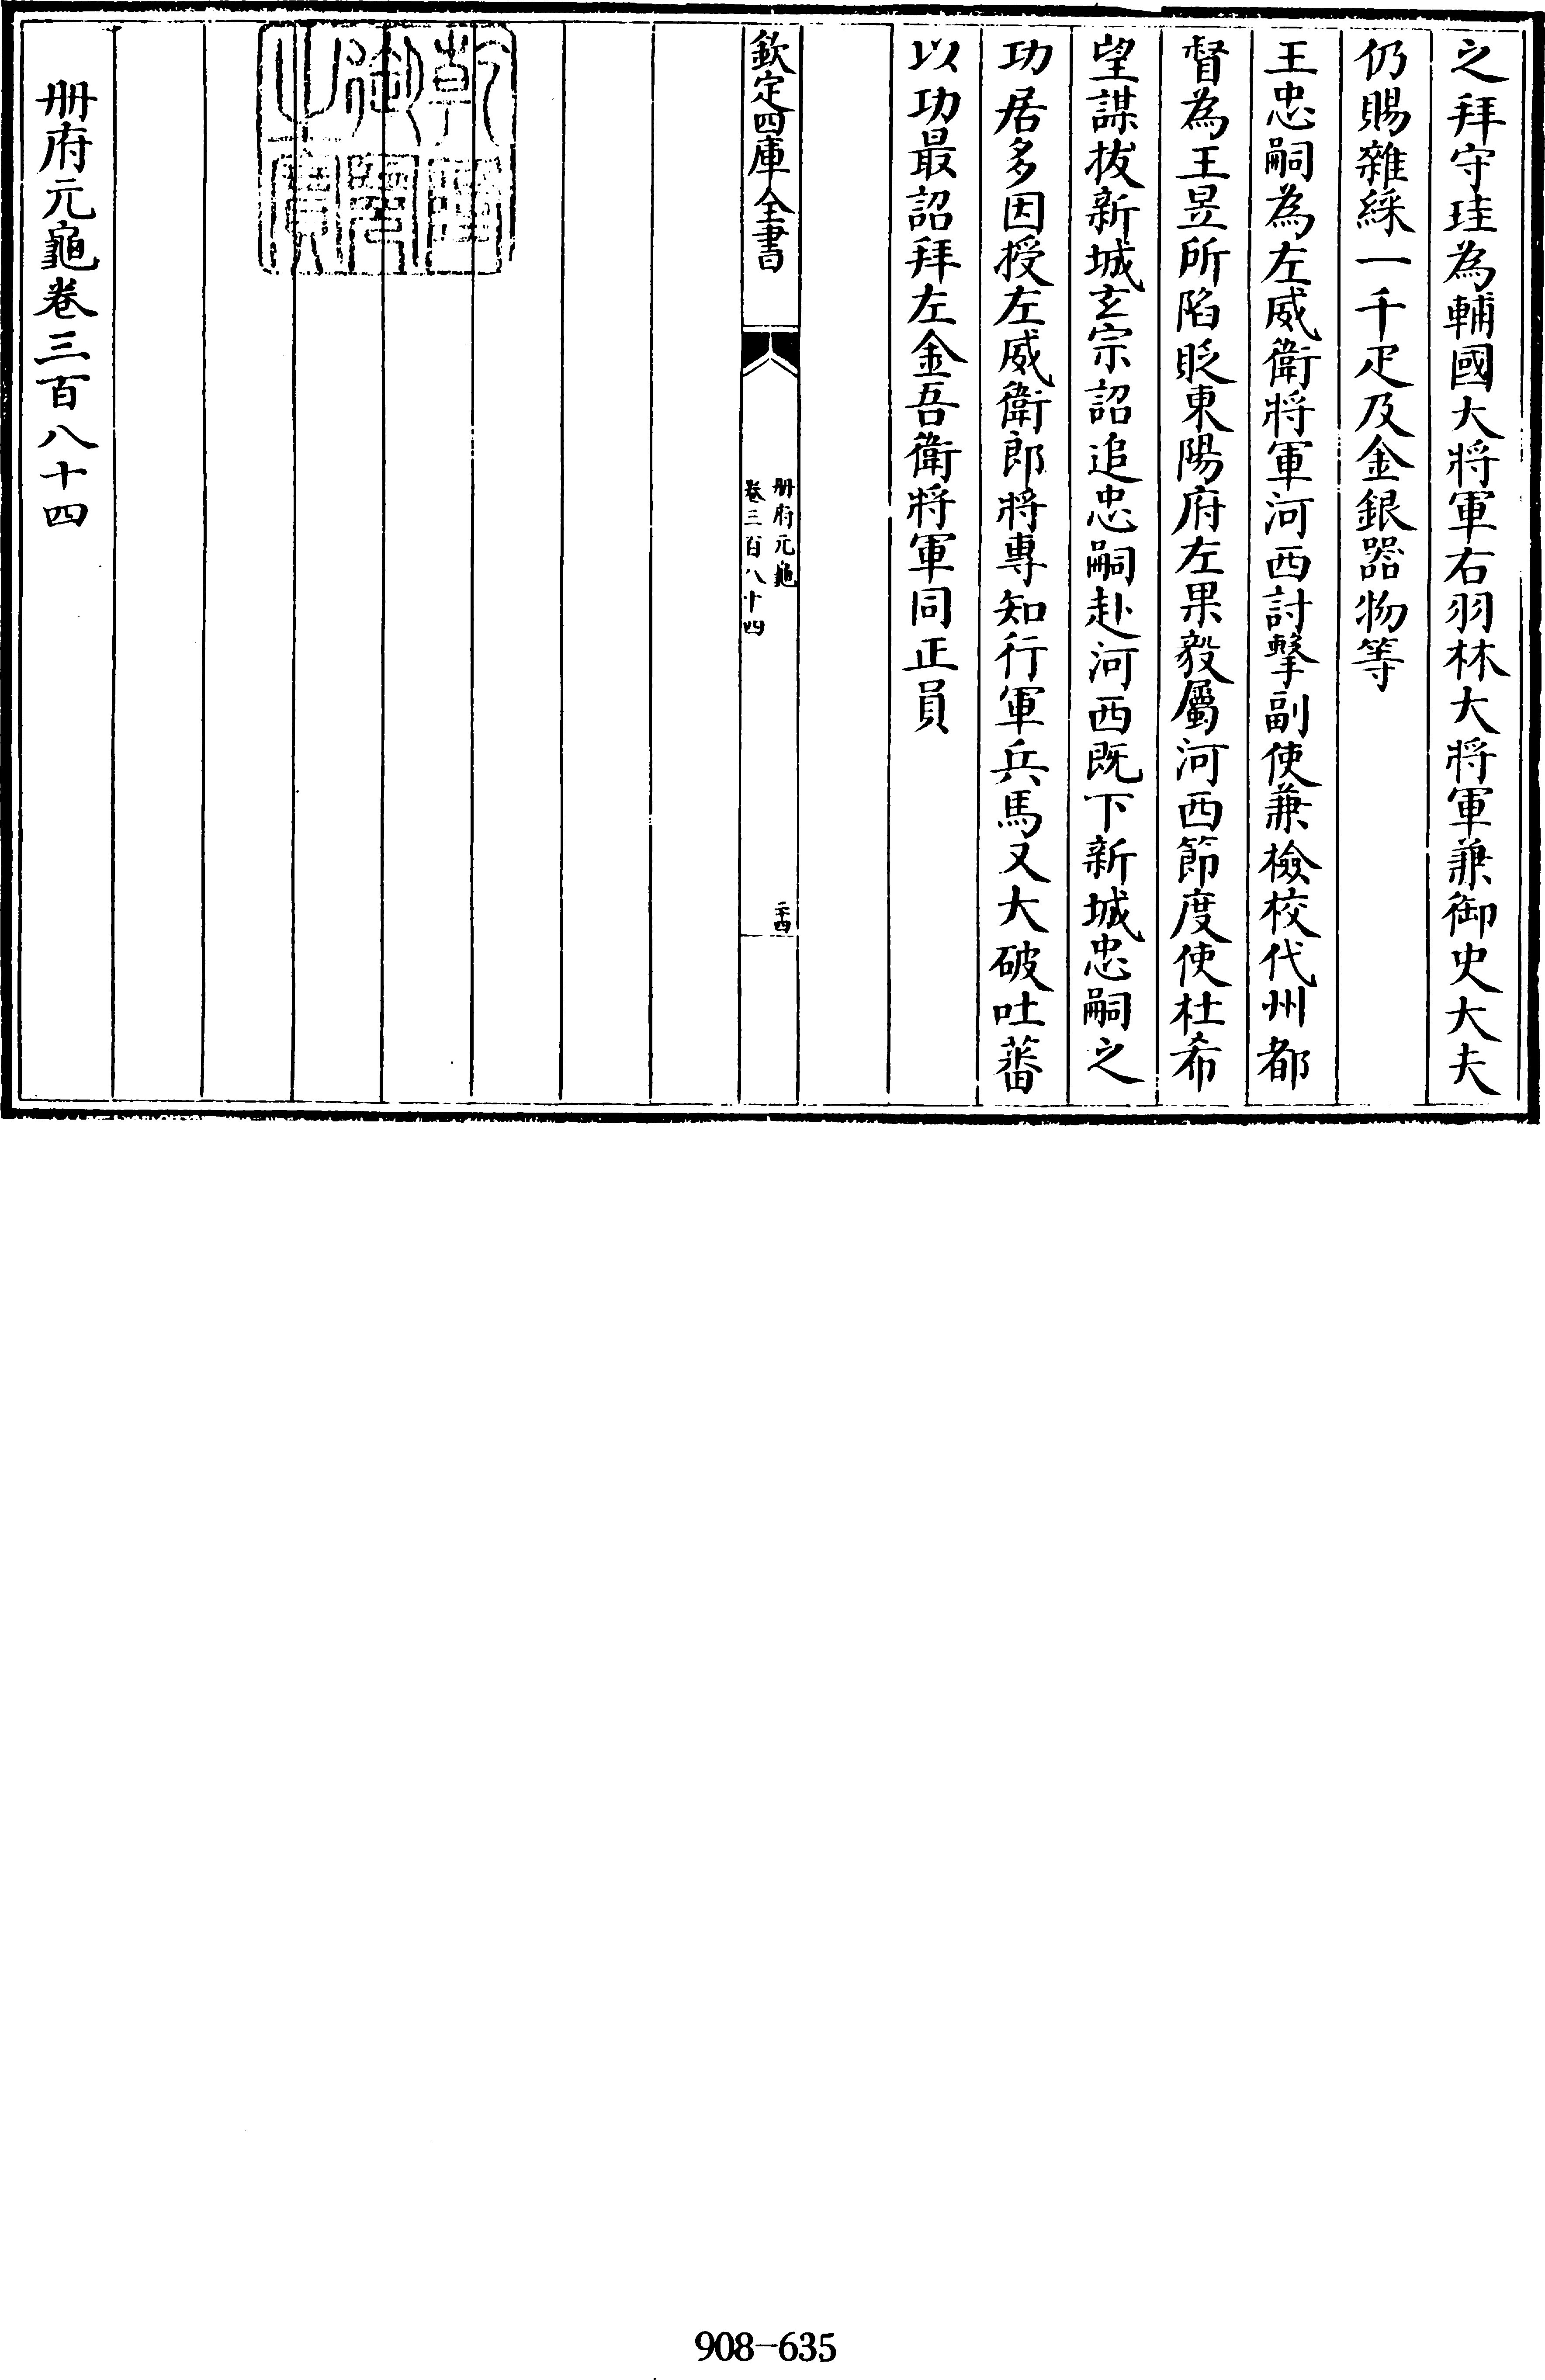 之拜守珪為輔國大將軍右羽林大將軍兼御史大夫
仍賜雜綵一千疋及金銀器物等
王忠嗣為左威衛將軍河西討擊副使兼檢校代州都
督為王昱所陷貶東陽府左果毅屬河西節度使杜希
望謀拔新城玄宗詔追忠嗣赴河西既下新城忠嗣之
功居多因授左威衛郎將專知行軍兵馬又大破吐蕃
以功最詔拜左金吾衛將軍同正員
欽定四庫全書
册府元龜
卷三百八十四
二十四
乾隆御覽之寶
册府元龜卷三百八十四
908-635